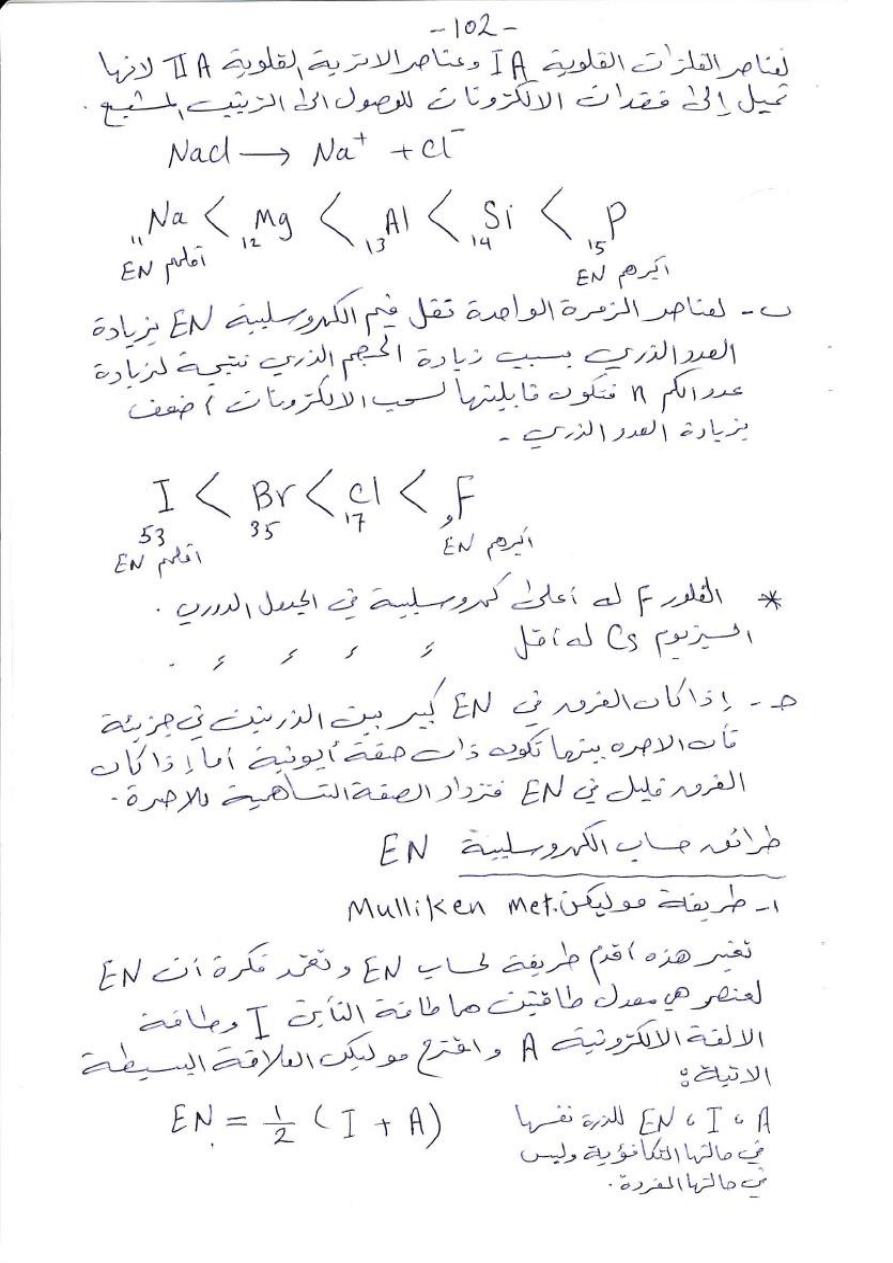 -102-
لعناصر الفلزات القلوية IA وعناصر الاترية القلوية IIA لانها
تميل إلى فقدات الالكترونات للوصول الى الترتيب المشبع .
Nacl → Na⁺ + Cl⁻
₁₁Na < ₁₂Mg < ₁₃Al < ₁₄Si < ₁₅P
أقلهم EN أكبرهم EN
ب- لعناصر الزمرة الواحدة تقل قيم الكهروسلبية EN بزيادة
العدد الذري بسبب زيادة الحجم الذري نتيجة لزيادة
عدد الكم n فتكون قابليتها لسحب الالكترونات اضعف
بزيادة العدد الذري -
₅₃I < ₃₅Br < ₁₇Cl < ₉F
أقلهم EN أكبرهم EN
* الفلور F له أعلى كهروسلبية في الجدول الدوري .
السيزيوم Cs له أقل ء ء ء ء .
جـ- إذا كان الفرق في EN كبير بين الذرتين في جزيئة
فأن الاصره بينها تكون ذات صفة أيونية أما إذا كان
الفرق قليل في EN فتزداد الصفة التساهمية للاصرة .
طرائق حساب الكهروسلبية EN
١- طريقة موليكن Mulliken met.
تعتبر هذه أقدم طريقة لحساب EN وتعتمد فكرة أن EN
لعنصر هي معدل طاقتين هما طاقة التأين I وطاقة
الالفة الالكترونية A واقترح موليكن العلاقة البسيطة
الاتية :
EN = ½ (I + A) A ، I ، EN للذرة نفسها
في حالتها التكافؤية وليس
في حالتها المفردة .